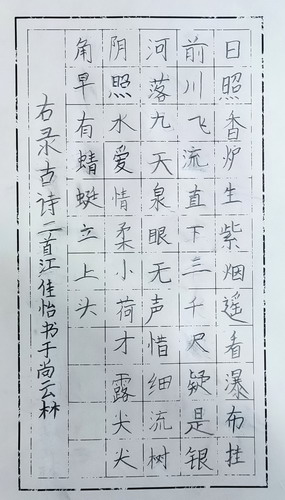 日照香炉生紫烟遥看瀑布挂
前川飞流直下三千尺疑是银
河落九天泉眼无声惜细流树
阴照水爱情柔小荷才露尖尖
角早有蜻蜓立上头
右录古诗二首江佳怡书于尚云林